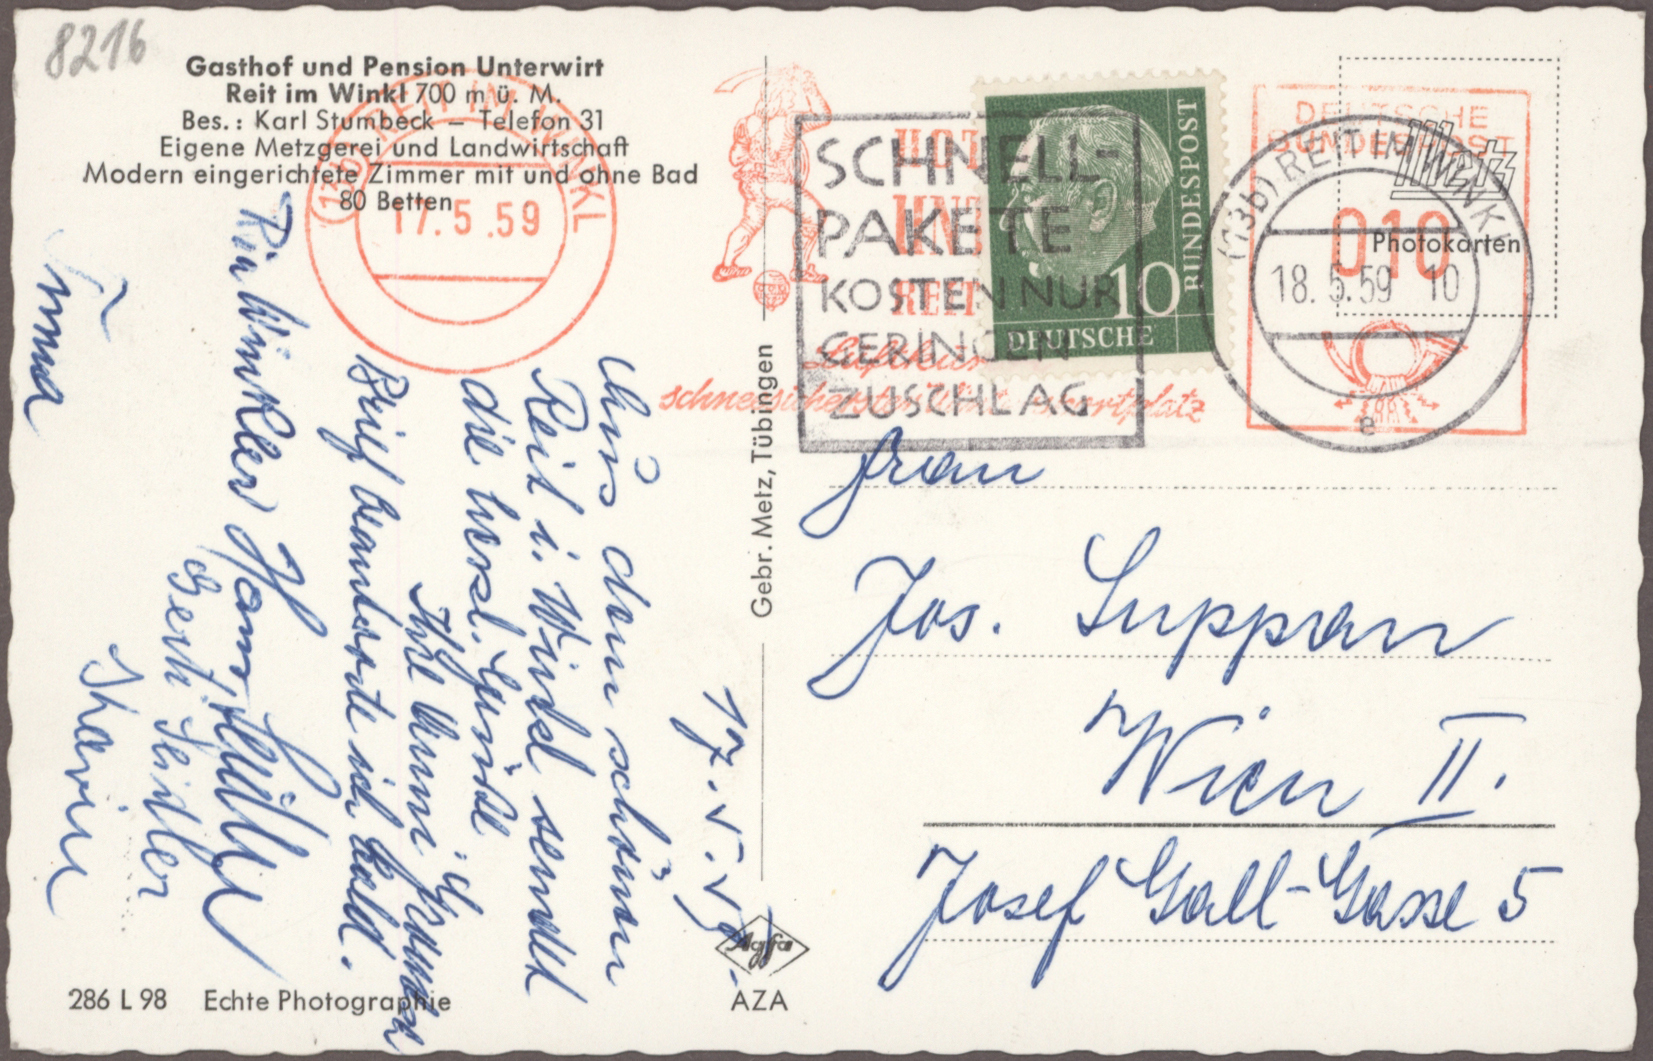 8216
Gasthof und Pension Unterwirt
Reit im Winkl 700 m ü. M.
Bes.: Karl Stumbeck — Telefon 31
Eigene Metzgerei und Landwirtschaft
Modern eingerichtete Zimmer mit und ohne Bad
80 Betten
(13b) REIT IM WINKL
17.5.59
schneesichersten Sportplatz
SCHNELL-
PAKETE
KOSTEN NUR
GERINGEN
ZUSCHLAG
BUNDESPOST
10
DEUTSCHE
DEUTSCHE
BUNDESPOST
010
Metz
Photokarten
(13b) REIT IM WINKL
18.5.59 10
e
Gebr. Metz, Tübingen
17.V.59.
Aus dem schönen
Reit i. Winkl sendet
die herzl. Grüße
Ihre
Brief beantworte ich bald.
Berti Seidler
Frau
Jos. Suppan
Wien II.
Josef Gall-Gasse 5
Agfa
AZA
286 L 98 Echte Photographie